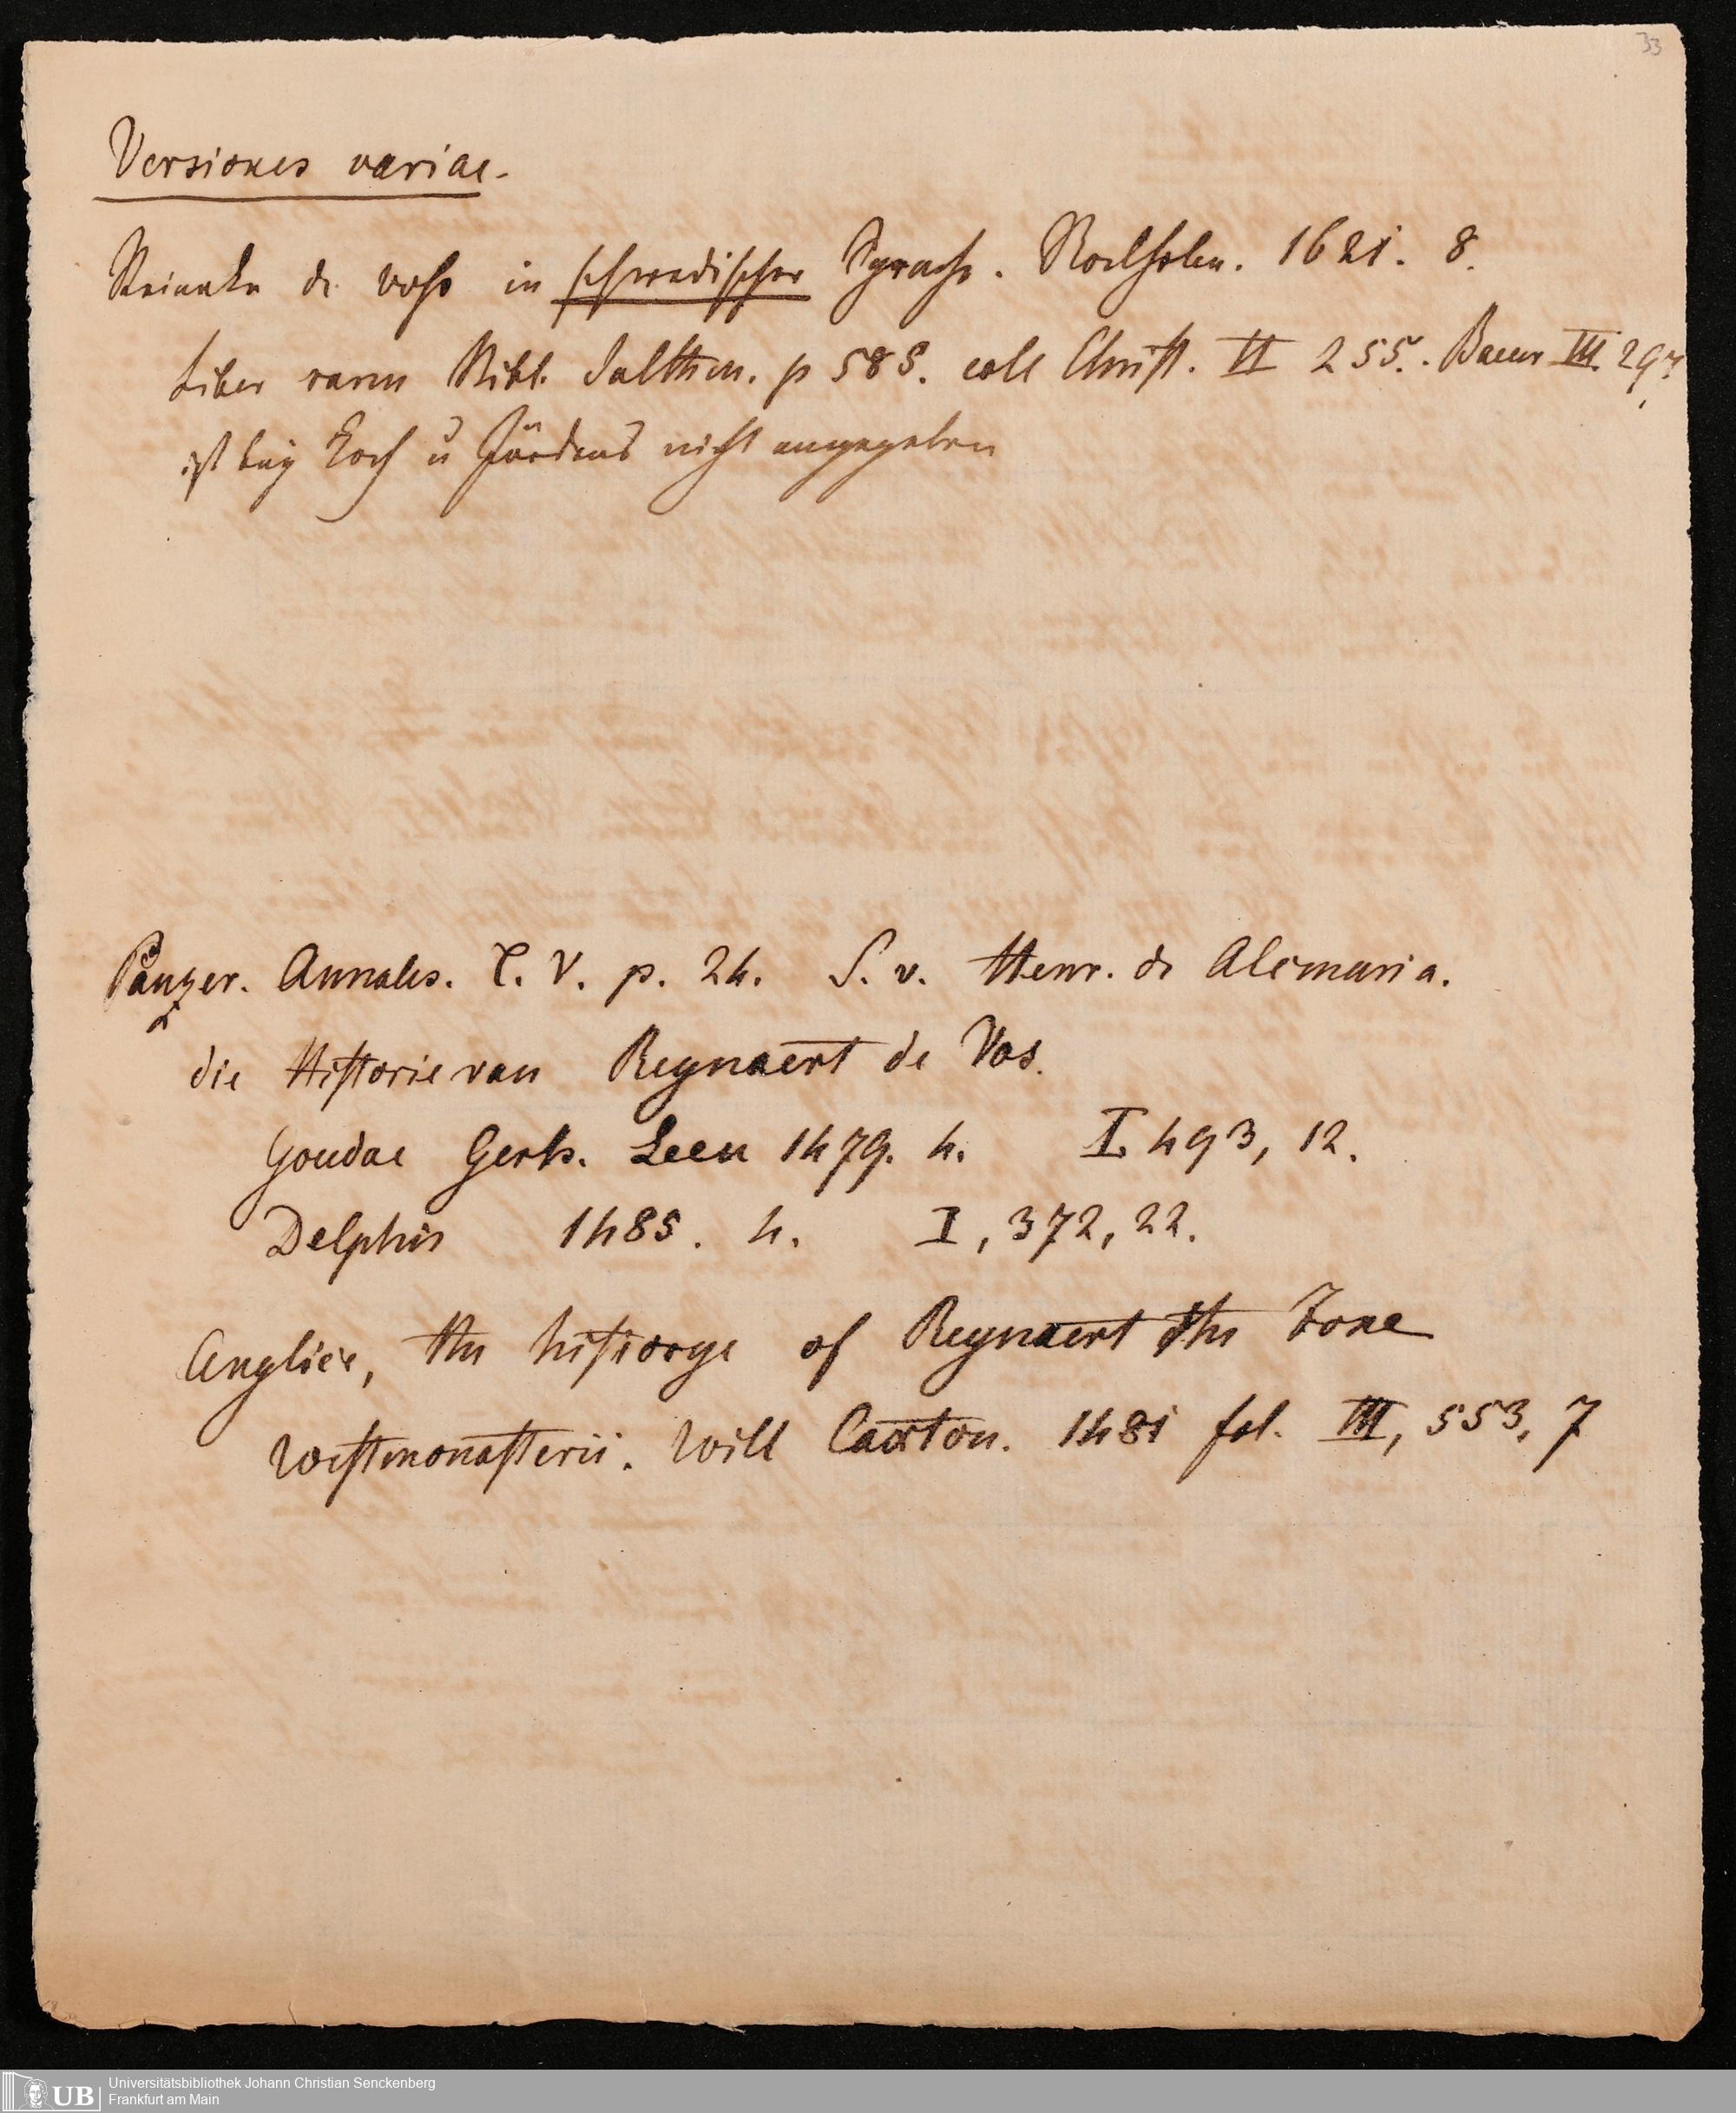 33
Versiones variae.
Reineke de voss in schwedischer Sprache. Stockholm. 1621. 8.
Liber rarus Bibl. Salthen. p 585. coll Christ. II 255. Bauer III. 297.
ist bey Koch u Jördens nicht angegeben
Panzer. Annales. T. V. p. 24. S. v. Henr. de Alemaria.
die Historie van Reynaert de Vos.
Goudae Gerh. Leeu 1479. 4. I. 493, 12.
Delphis 1485. 4. I, 372, 22.
Anglice, the historye of Reynaert the Foxe
Westmonasterii. Will Caxton. 1481 fol. III, 553, 7
UB Universitätsbibliothek Johann Christian Senckenberg
Frankfurt am Main